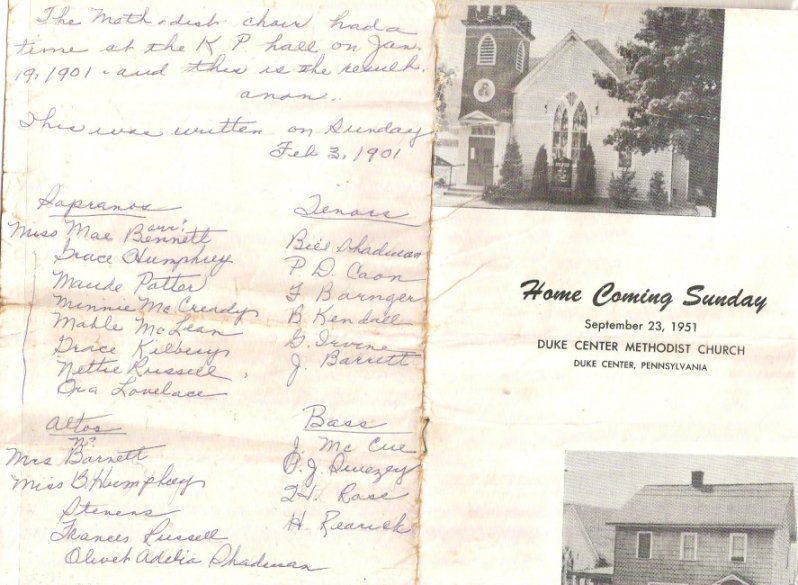 The Methodist choir had a
time at the K P hall on Jan.
19, 1901 - and this is the result.
anon..
This was written on Sunday
Feb 3, 1901
Sopranos
Miss Mae Bennett
Grace Humphrey
Maude Potter
Minnie McCready
Mable McLean
Grace Kilbery
Nettie Russell
Ora Lovelace
Tenors
Bill Shadman
P. D. Caon
F Barnger
B Kendall
G. Irvine
J. Barrett
Altos
Mrs Barnett
Miss B. Humphrey
Stevens
Frances Russell
Olivet Adelia Shadman
Bass
J. Mc Cue
O. J. Swezey
Ross
H. Rearick
Home Coming Sunday
September 23, 1951
DUKE CENTER METHODIST CHURCH
DUKE CENTER, PENNSYLVANIA